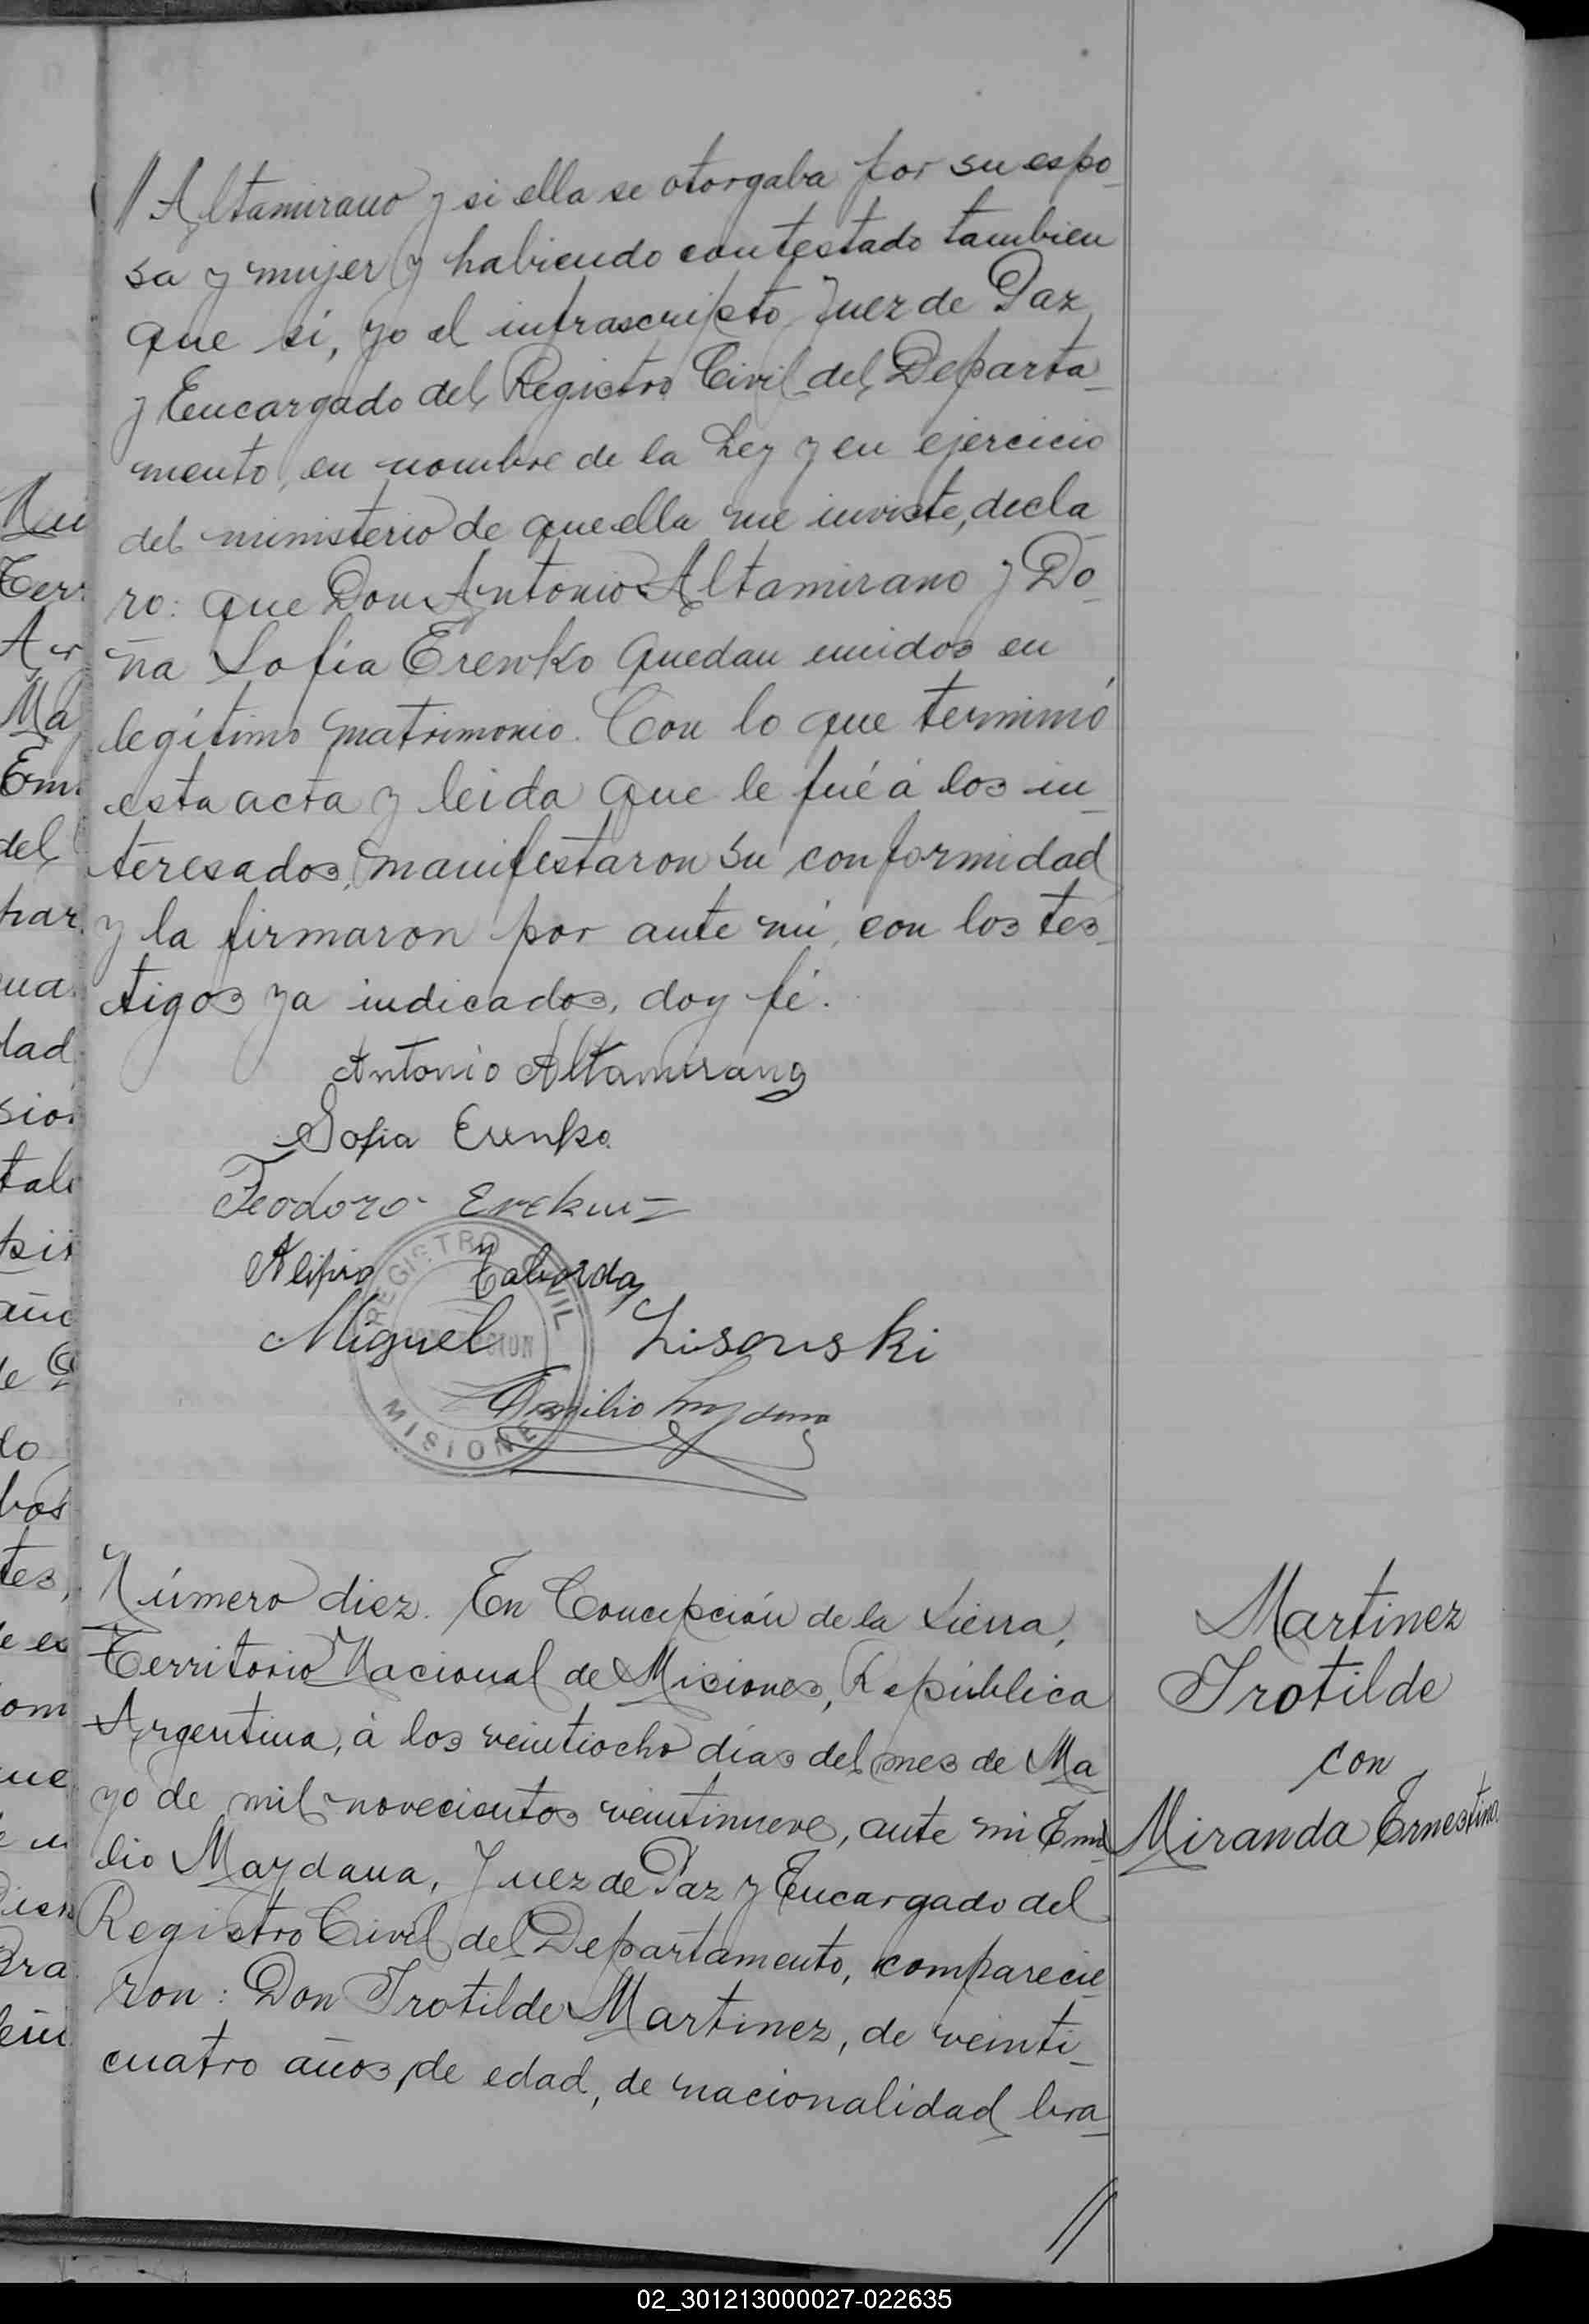 // Altamirano y si ella se otorgaba por su espo-
sa y mujer y habiendo contestado tambien
que si, yo el infrascripto Juez de Paz
y Encargado del Registro Civil del Departa-
mento, en nombre de la Ley y en ejercicio
del ministerio de que ella me inviste, decla-
ro: que Don Antonio Altamirano y Do-
ña Sofia Erenko quedan unidos en
legítimo matrimonio. Con lo que terminó
esta acta y leida que le fué á los in-
teresados, manifestaron su conformidad
y la firmaron por ante mi, con los tes-
tigos ya indicados, doy fé.
Antonio Altamirano
Sofia Erenko
Teodoro
Alipio Taborda
Miguel Lisouski
REGISTRO CIVIL
MISIONES
Emilio Maydana
Número diez. En Concepción de la Sierra,
Territorio Nacional de Misiones, República
Argentina, á los veintiocho días del mes de Ma-
yo de mil novecientos veintinueve, ante mi Emi-
lio Maydana, Juez de Paz y Encargado del
Registro Civil del Departamento, comparecie-
ron: Don Trotilde Martinez, de veinti-
cuatro años de edad, de nacionalidad bra-
//
Martinez
Trotilde
con
Miranda Ernestina
02_301213000027-022635